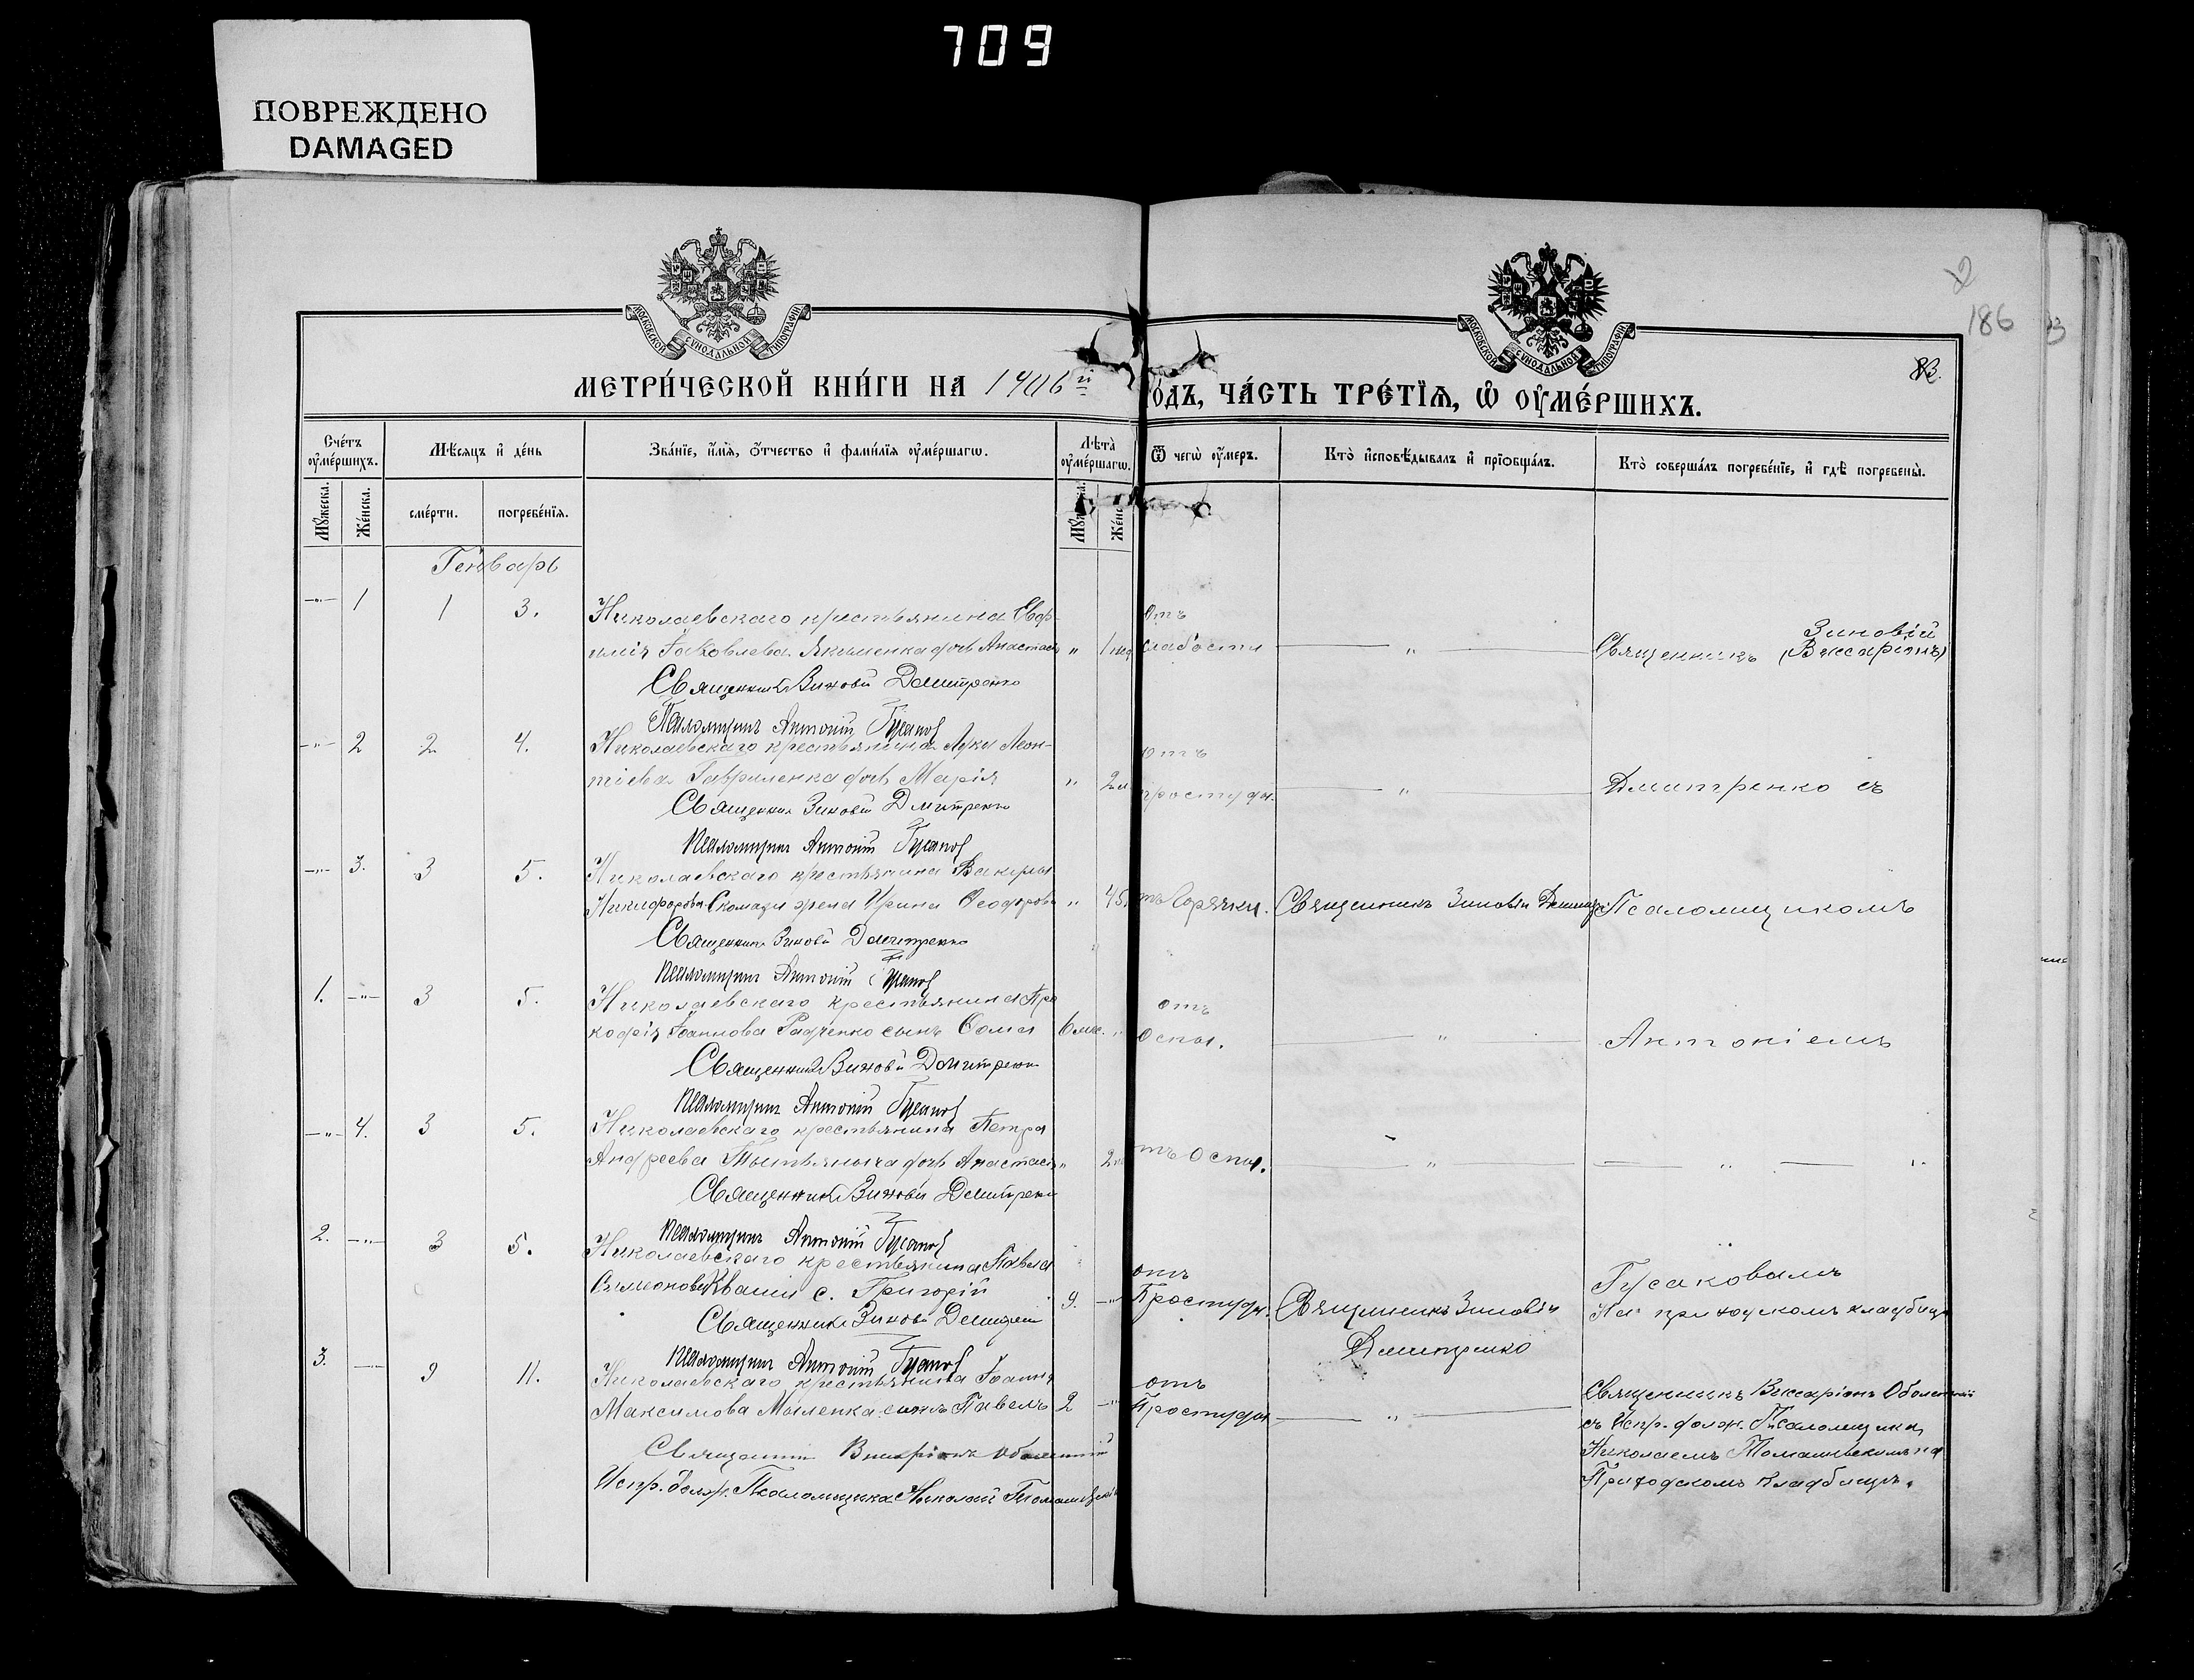 709
ПОВРЕЖДЕНО
DAMAGED
МОСКОВСКОЙ СУНОДАЛЬНОЙ ТИПОГРАФІИ
МОСКОВСКОЙ СУНОДАЛЬНОЙ ТИПОГРАФІИ
186
83.
МЕТРИ́ЧЕСКОЙ КНИ́ГИ НА 1906й
О́ДЪ, ЧА́СТЬ ТРЕ́ТІѦ, Ѡ҆ ОУ҆МЕ́РШИХЪ.
Сче́тъ оу҆ме́ршихъ.
Мѣ́сяцъ и҆ де́нь
Зва́нїе, и҆́мѧ, ѻ҆́тчество и҆ фами́лїѧ оу҆ме́ршагѡ.
Лѣта̀ оу҆ме́ршагѡ.
Ѿ чегѡ̀ оу҆́меръ.
Кто̀ и҆сповѣ́дывалъ и҆ прїѡбща́лъ.
Кто̀ соверша́лъ погребе́нїе, и҆ гдѣ̀ погребены̀.
Мꙋ́жеска.
Же́нска.
сме́рти.
погребе́нїѧ.
Генварь
— 1 1 3. Николаевскаго крестьянина Евф-
имія Іаковлева Якименка дочь Анастасія
Священникъ Зиновій Дмитренко
Псаломщикъ Антоній Гусаковъ
отъ
слабости
Священникъ Зиновій (Виссаріонъ)
— 2 2 4. Николаевскаго крестьянина Луки Леон-
тіева Гавриленка дочь Марія
Священникъ Зиновій Дмитренко
Псаломщикъ Антоній Гусаковъ
отъ
простуды.
Дмитренко съ
— 3. 3 5. Николаевскаго крестьянина
Никифорова жена Ирина Ѳеодорова 45
Священникъ Зиновій Дмитренко
Псаломщикъ Антоній Гусаковъ
тъ Горячки.
Священникъ Зиновій
Псаломщикомъ
1. — 3 5. Николаевскаго крестьянина Про
кофія Іоаннова Радченко сынъ Ѳома 6 мѣс.
Священникъ Зиновій Дмитренко
Псаломщикъ Антоній Гусаковъ
отъ
Оспы.
Антоніемъ
— 4. 3 5. Николаевскаго крестьянина Петра
Андреева дочь Анастасія 2
Священникъ Зиновій Дмитренко
Псаломщикъ Антоній Гусаковъ
тъ Оспы.
2. — 3 5. Николаевскаго крестьянина Павла
Симонова Кваши с. Григорій 9.
Священникъ Зиновій Дмитренко
Псаломщикъ Антоній Гусаковъ
отъ
Простуды.
Священникъ Зиновій
Дмитренко
Гусаковымъ
На приходскомъ кладбищѣ
3. — 9 11. Николаевскаго крестьянина Іоанна
Максимова Мыленка сынъ Павелъ 2
Священникъ Виссаріонъ
Испр. долж. Псаломщика Николай
отъ
Простуды
Священникъ Виссаріонъ
съ Испр. долж. Псаломщика
Николаемъ Томашевскимъ на
Приходскомъ кладбищѣ.